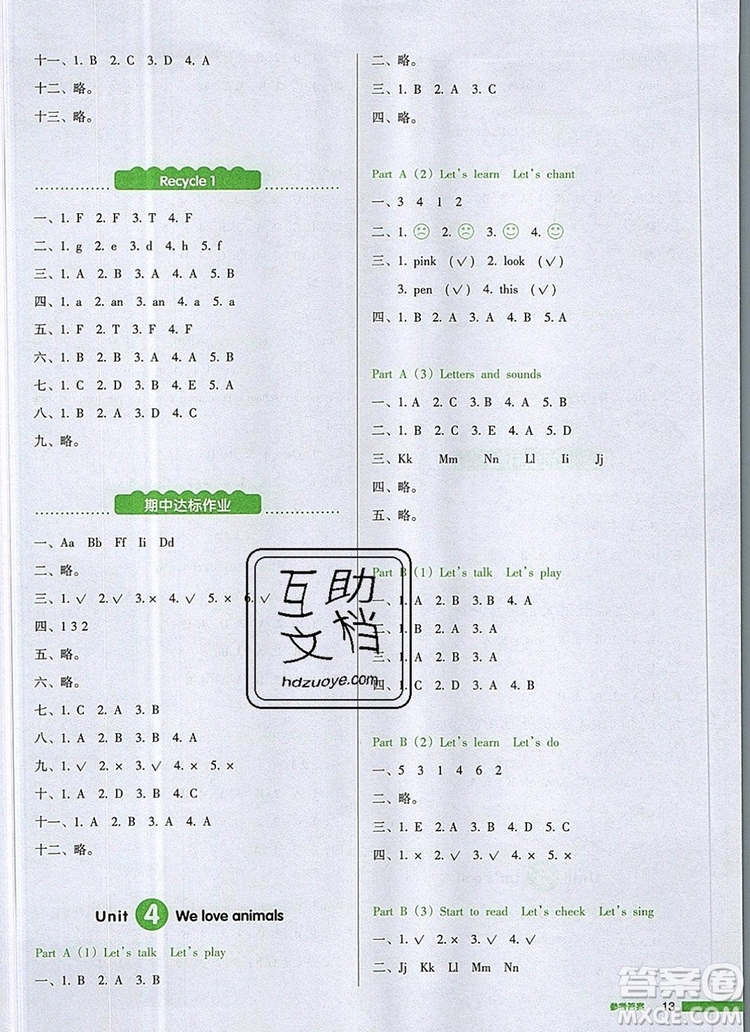 十一、1. B 2. C 3. D 4. A
十二、略。
十三、略。
Recycle 1
一、1. F 2. F 3. T 4. F
二、1. g 2. e 3. d 4. h 5. f
三、1. A 2. B 3. A 4. A 5. B
四、1. a 2. an 3. an 4. a 5. a
五、1. F 2. T 3. F 4. F
六、1. B 2. B 3. A 4. A 5. B
七、1. C 2. D 3. B 4. E 5. A
八、1. B 2. A 3. B 4. A 5. B
九、略。
期中达标作业
一、Aa Bb Ff Ii Dd
二、略。
三、1. ✓ 2. ✓ 3. × 4. ✓ 5. × 6. ✓
四、1 3 2
五、略。
六、略。
七、1. C 2. A 3. B
八、1. A 2. B 3. B 4. A
九、1. ✓ 2. × 3. ✓ 4. ✓ 5. ×
十、1. A 2. D 3. C 4. B
十一、1. A 2. B 3. A 4. B 5. A
十二、略。
Unit 4 We love animals
Part A (1) Let's talk Let's play
一、1. B 2. A 3. B
二、略。
三、1. B 2. A 3. C
四、略。
Part A (2) Let's learn Let's chant
一、3 4 1 2
二、1. ☹ 2. ☹ 3. ☺ 4. ☺
三、1. pink (✓) 2. look (✓)
3. pen (✓) 4. this (✓)
四、1. B 2. A 3. B 4. B 5. A
Part A (3) Letters and sounds
一、1. A 2. C 3. B 4. A 5. B
二、1. B 2. C 3. E 4. A 5. D
三、Kk Mm Nn Ll Ii Jj
四、略。
五、略。
Part B (1) Let's talk Let's play
一、1. A 2. B 3. A
二、1. A 2. B 3. B
三、1. B 2. A 3. A
四、1. C 2. D 3. A 4. B
Part B (2) Let's learn Let's do
一、5 3 1 4 6 2
二、略。
三、1. E 2. A 3. B 4. D 5. C
四、1. × 2. ✓ 3. × 4. ✓
Part B (3) Start to read Let's check Let's sing
一、1. ✓ 2. × 3. ✓ 4. ✓
二、Jj Mm Nn Ll
参考答案 13
互助
文档
hdzuoye.com
答案圈
MXQE.COM